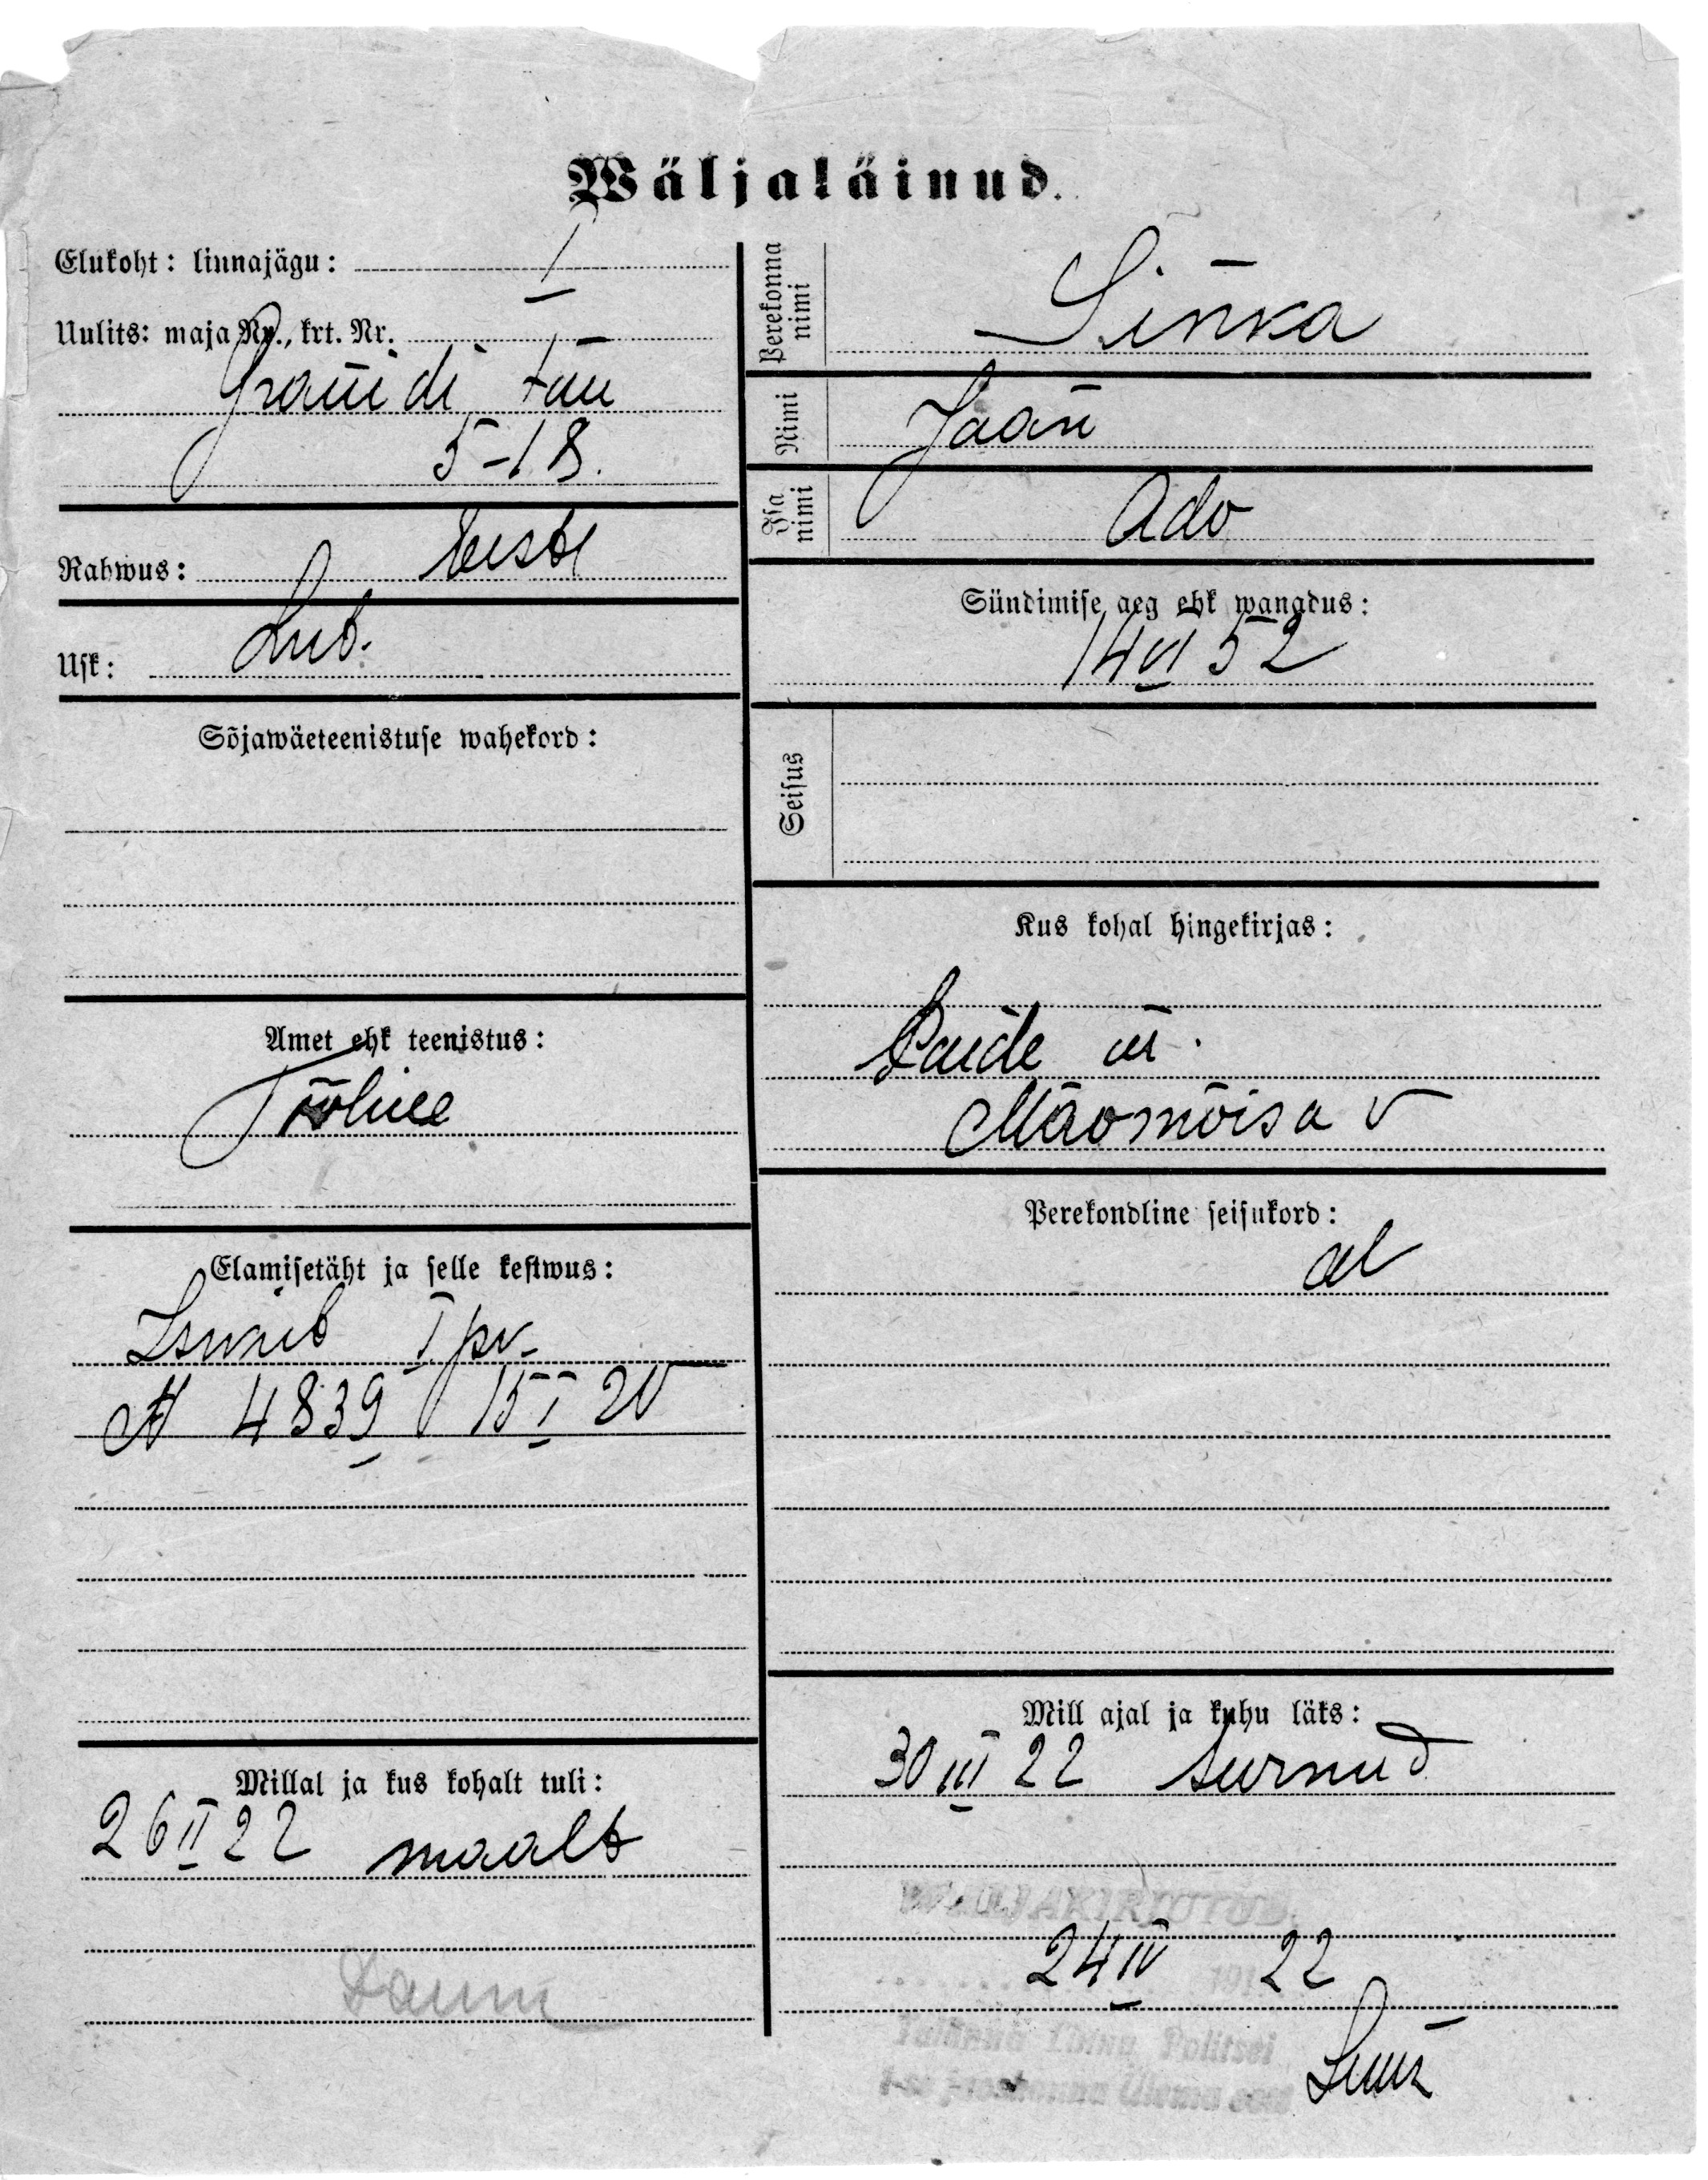 Wäljakäinud.
Elukoht: linnajägu: I
Uulits: maja Nr., krt. Nr.
Graniidi tän
5-18.
Rahwus: Eesti
Usk: Lut.
Sõjawäeteenistuse wahekord:
Amet ehk teenistus:
Tööline
Elamisetäht ja selle kestwus:
I pr.
A 4839 15 I 20
Millal ja kus kohalt tuli:
26 II 22 maalt
Perekonna nimi
Sinka
Nimi
Jaan
Isa nimi
Ado
Sündimise aeg ehk wanadus:
14 VI 52
Seisus
Kus kohal hingekirjas:
Paide
Mäomõisa v
Perekondline seisukord:
al
Mill ajal ja kuhu läks:
30 III 22 surnud
WÄLJAKIRJUTUD.
24 IV 191 22
Tallinna Linna Politsei
1-se jaoskonna Ülema